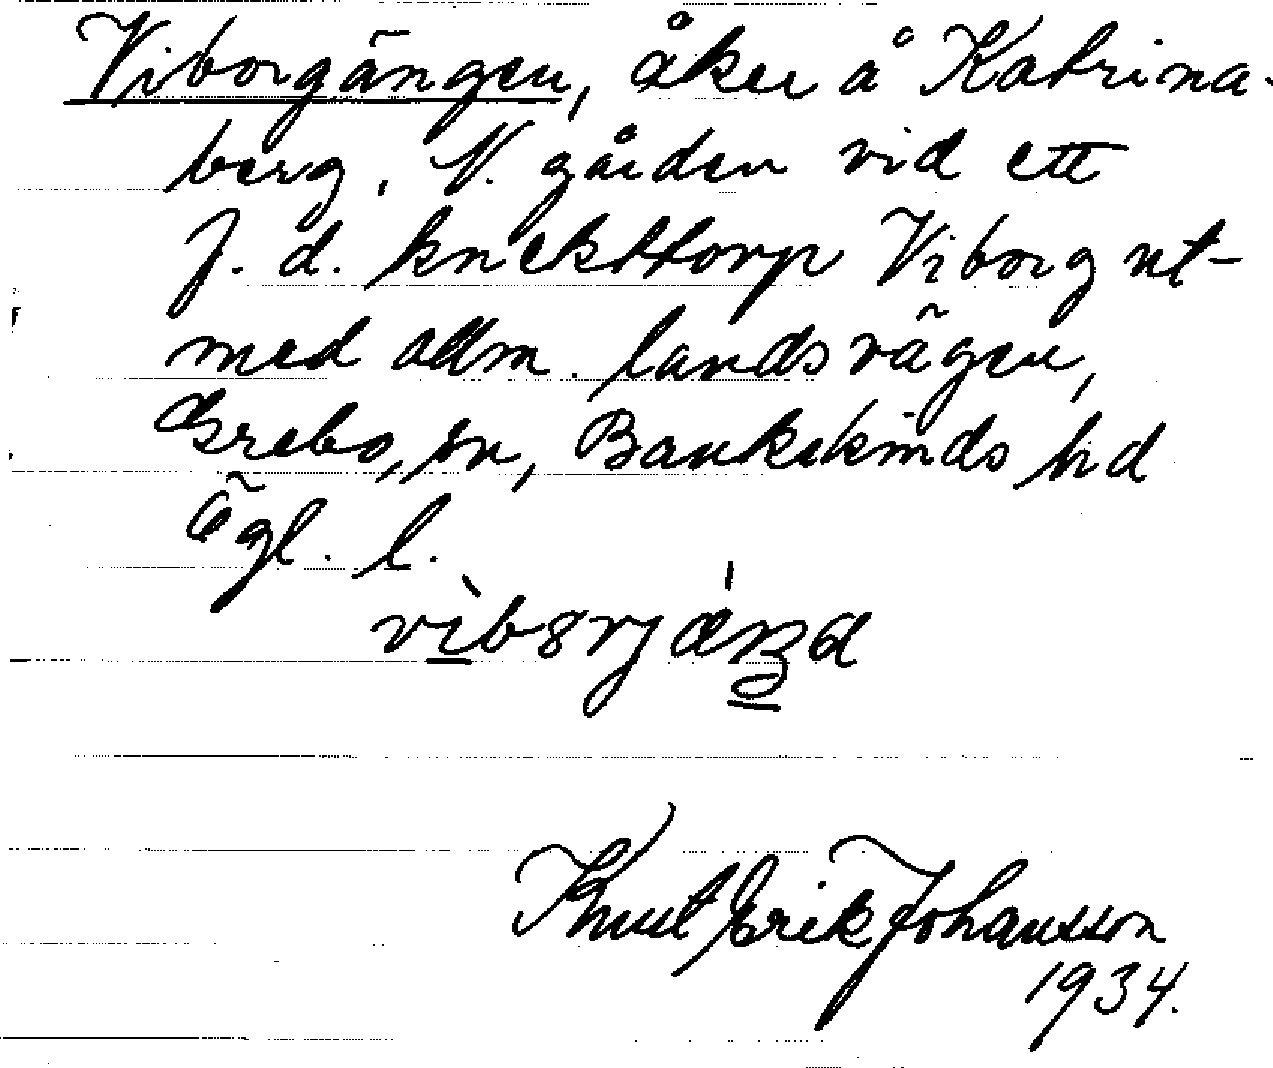 Viborgängen, åker å Katrina-
berg, N. gården vid ett
f. d. knekttorp Viborg ut-
med allm. landsvägen,
Grebo, sn, Bankekinds hd
Ögl. l.
Knut Erik Johansson
1934.